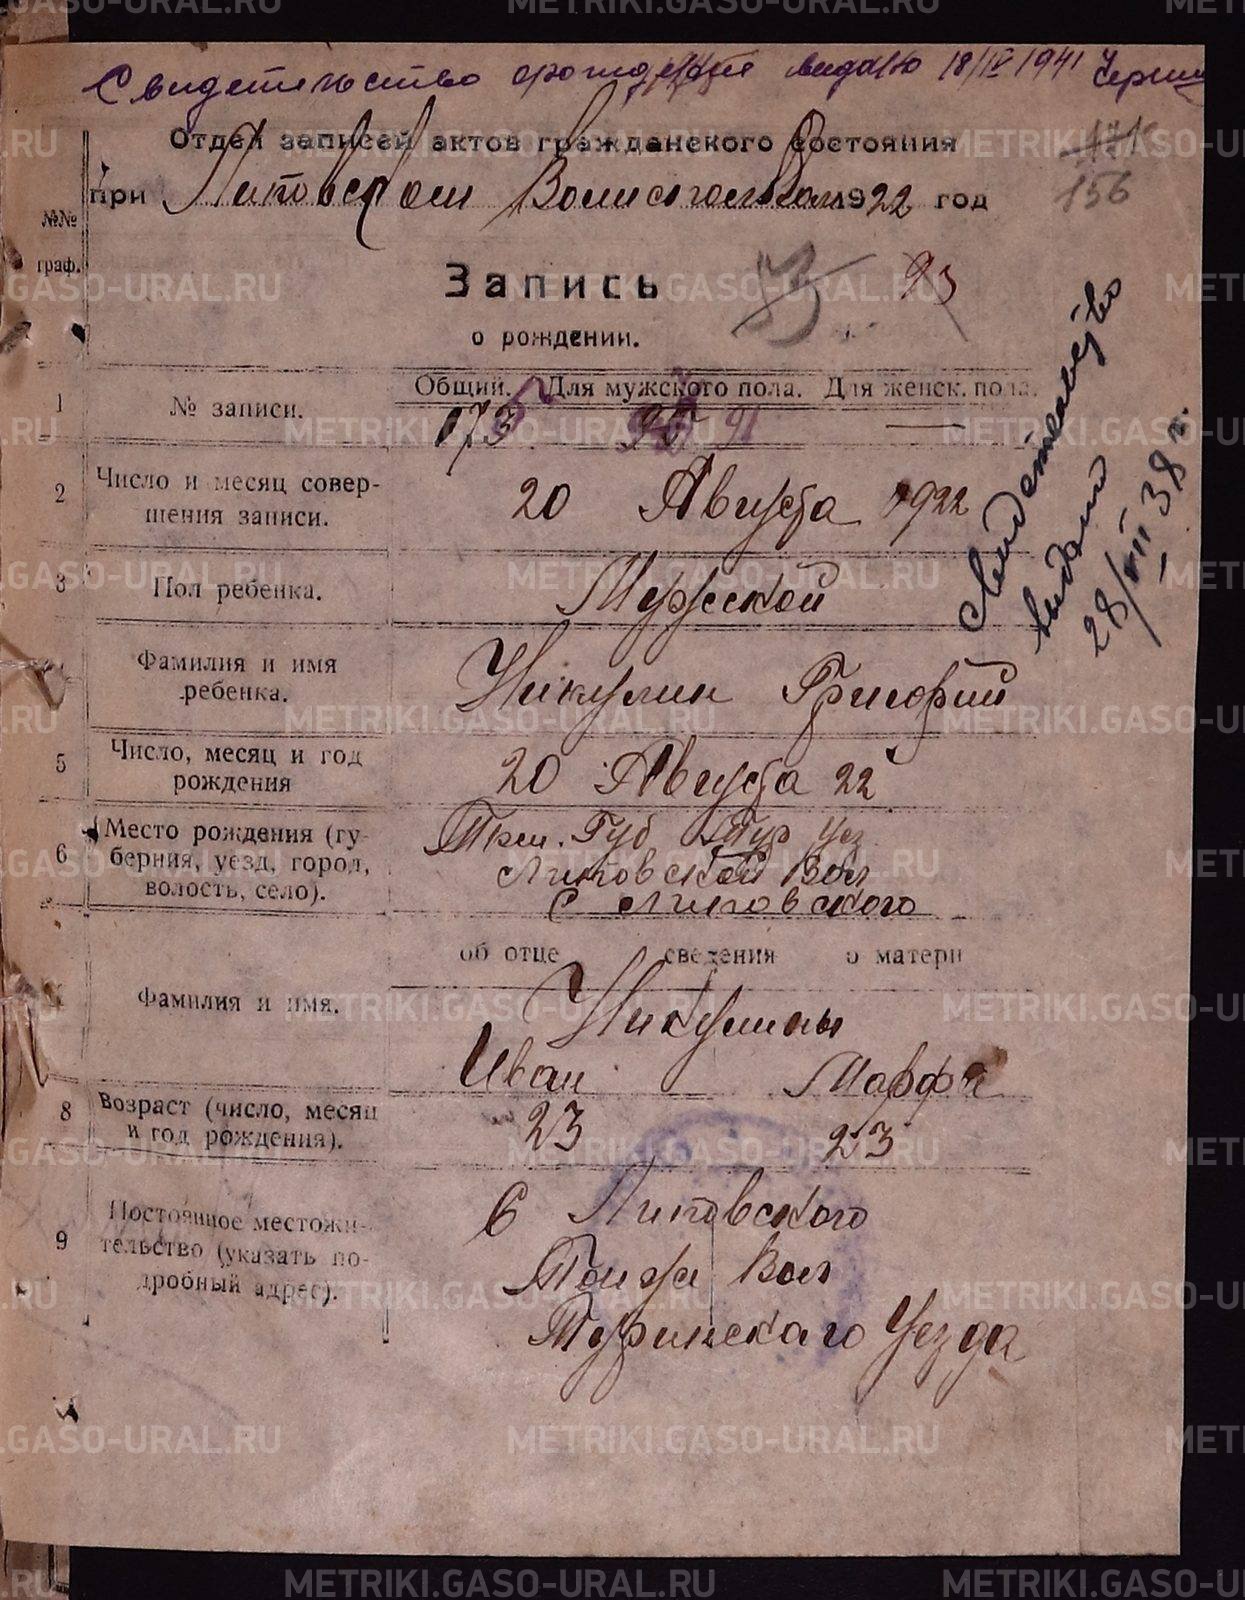 Свидетельство о рождении выдано 18/IV 1941
Отдел записей актов гражданского состояния
при Липовском Волисполкоме 1922 год
171
156
№№ граф.
Запись
93
о рождении.
Свидетельство
выдано
28/VIII 38 г.
Общий. Для мужского пола. Для женск. пола.
1 № записи. 173 91 —
2 Число и месяц совер-
шения записи. 20 Августа 1922
3 Пол ребенка. Мужской
Фамилия и имя
ребенка. Никулин Григорий
5 Число, месяц и год
рождения 20 Августа 22
6 Место рождения (гу-
берния, уезд, город,
волость, село).
Тюм. Губ Тур Уез
Липовской Вол
С Липовского
об отце сведения о матери
Фамилия и имя. Никулины
Иван Марфа
8 Возраст (число, месяц
и год рождения). 23 23
9 Постоянное местожи-
тельство (указать по-
дробный адрес).
С Липовского
Той же Вол
Туринскаго Уезда
METRIKI.GASO-URAL.RU